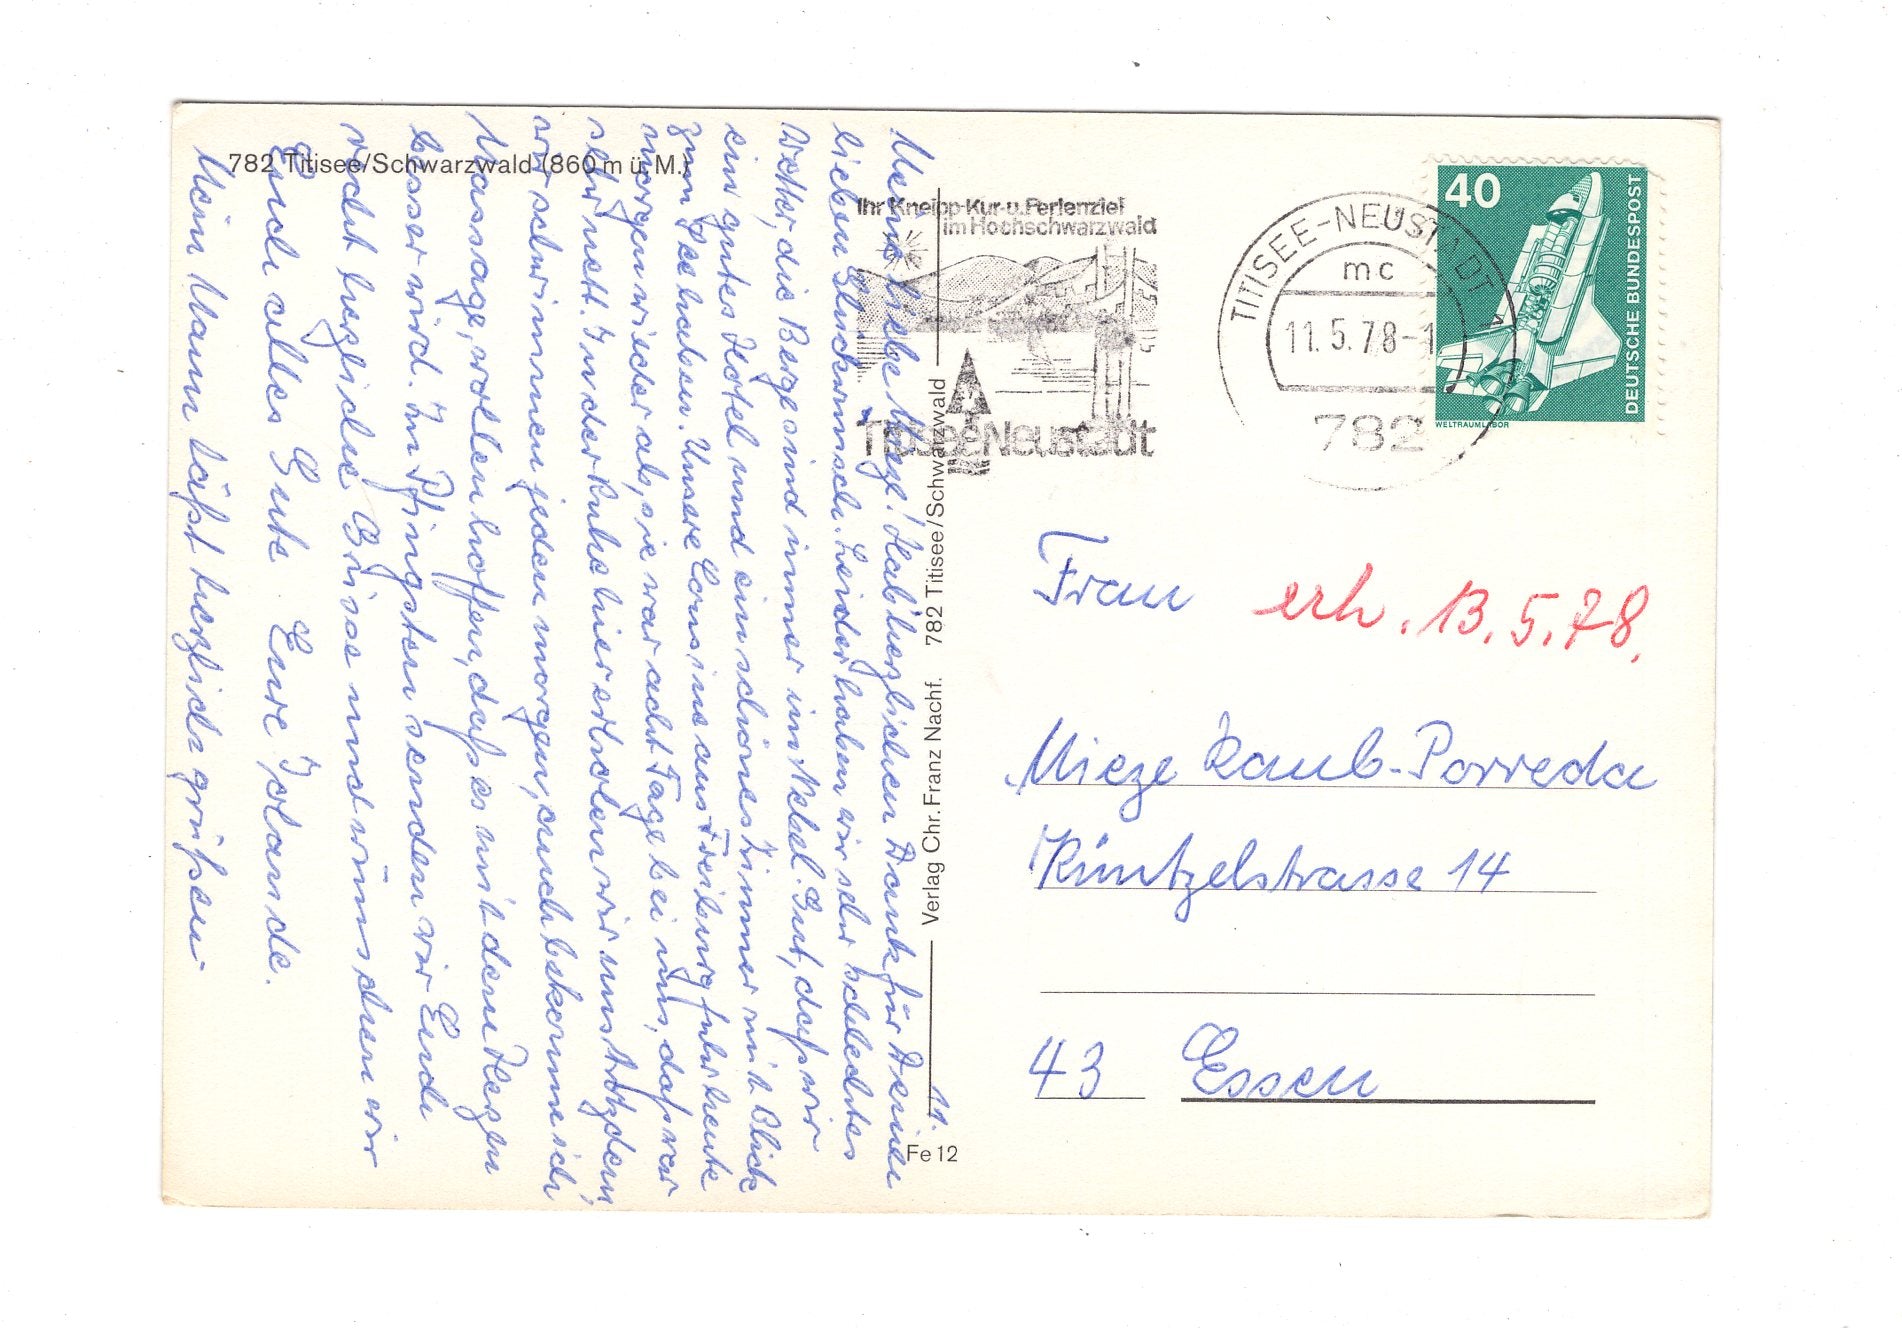 782 Titisee/Schwarzwald (860 m ü. M.)
Ihr Kneipp-Kur-u. Ferienziel
im Hochschwarzwald
Titisee-Neustadt
TITISEE-NEUSTADT
mc
11.5.78-1
782
40
DEUTSCHE BUNDESPOST
WELTRAUMLABOR
11.
Meine liebe Mieze! Hab' herzlichen Dank für Deinen
lieben Glückwunsch. Leider haben wir sehr schlechtes
Wetter, die Berge sind immer im Nebel. Gut, daß wir
ein gutes Hotel und ein schönes Zimmer mit Blick
zum See haben. Unsere Cousine aus Freiburg fuhr heute
morgen wieder ab, sie war acht Tage bei uns, das war
sehr nett. In der Ruhe hier erholen wir uns trotzdem
wir schwimmen jeden morgen, auch bekomme ich
Massage, wollen hoffen, daß es mit dem Regen
besser wird. Zu Pfingsten senden wir Euch
recht herzliche Grüsse und wünschen wir
Euch alles Gute. Eure Jolande.
Mein Mann läßt herzlich grüßen
Verlag Chr. Franz Nachf. 782 Titisee/Schwarzwald
Fe 12
Frau
erh. 13.5.78.
Mieze Raub-Porreda
Küntzelstrasse 14
43 Essen